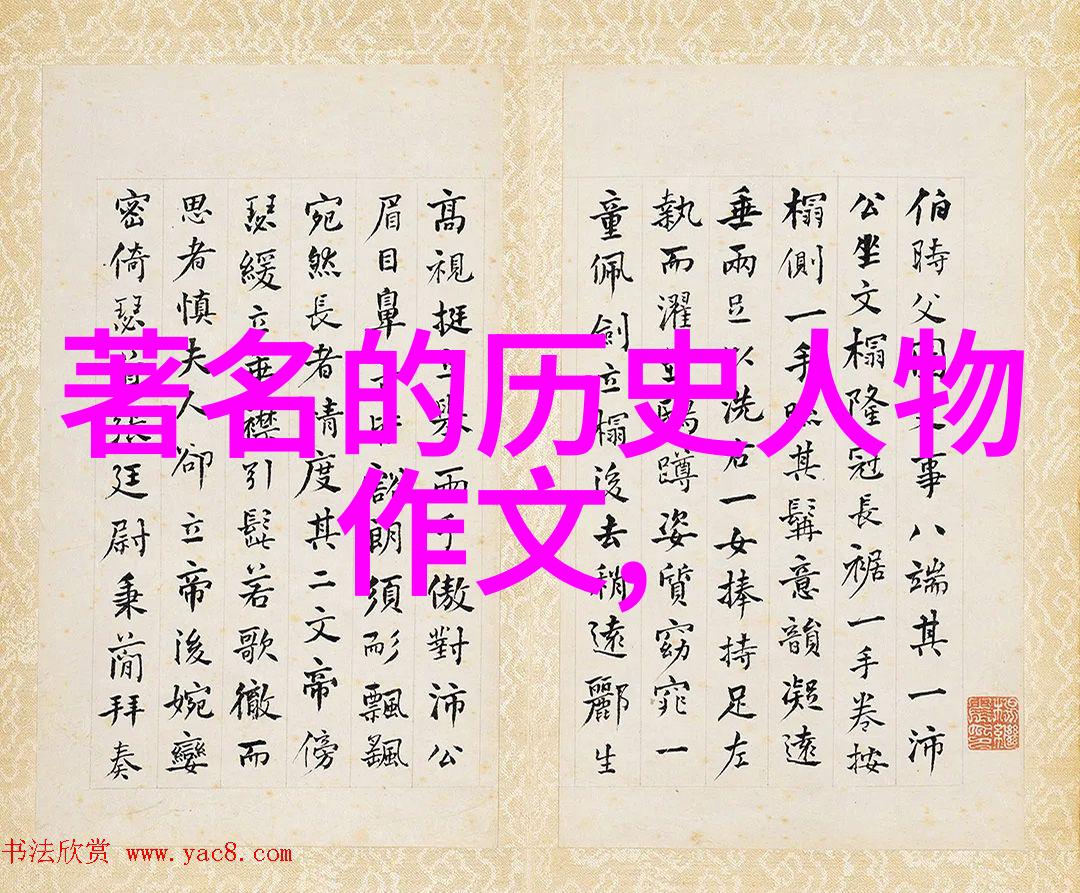 伯時父圖事八端其一沛
公坐文榻隆冠長裾一手卷按
榻側一手其髯意韻凝遠
垂兩足以洗右一女捧持足左
執而濯蹲姿質窈窕一
童佩劍立榻後去稍遠酈生
高視挺兩手傲對沛公
眉目鼻朗須耏飄颻
宛然長者情度其二文帝傍
瑟緩立垂襟引髭若歌徹而
思者慎夫人卻立帝後婉孌
密倚瑟首張廷尉秉蕳拜奏
著名的历史人物
作文,
书法欣赏 www.yac8.com